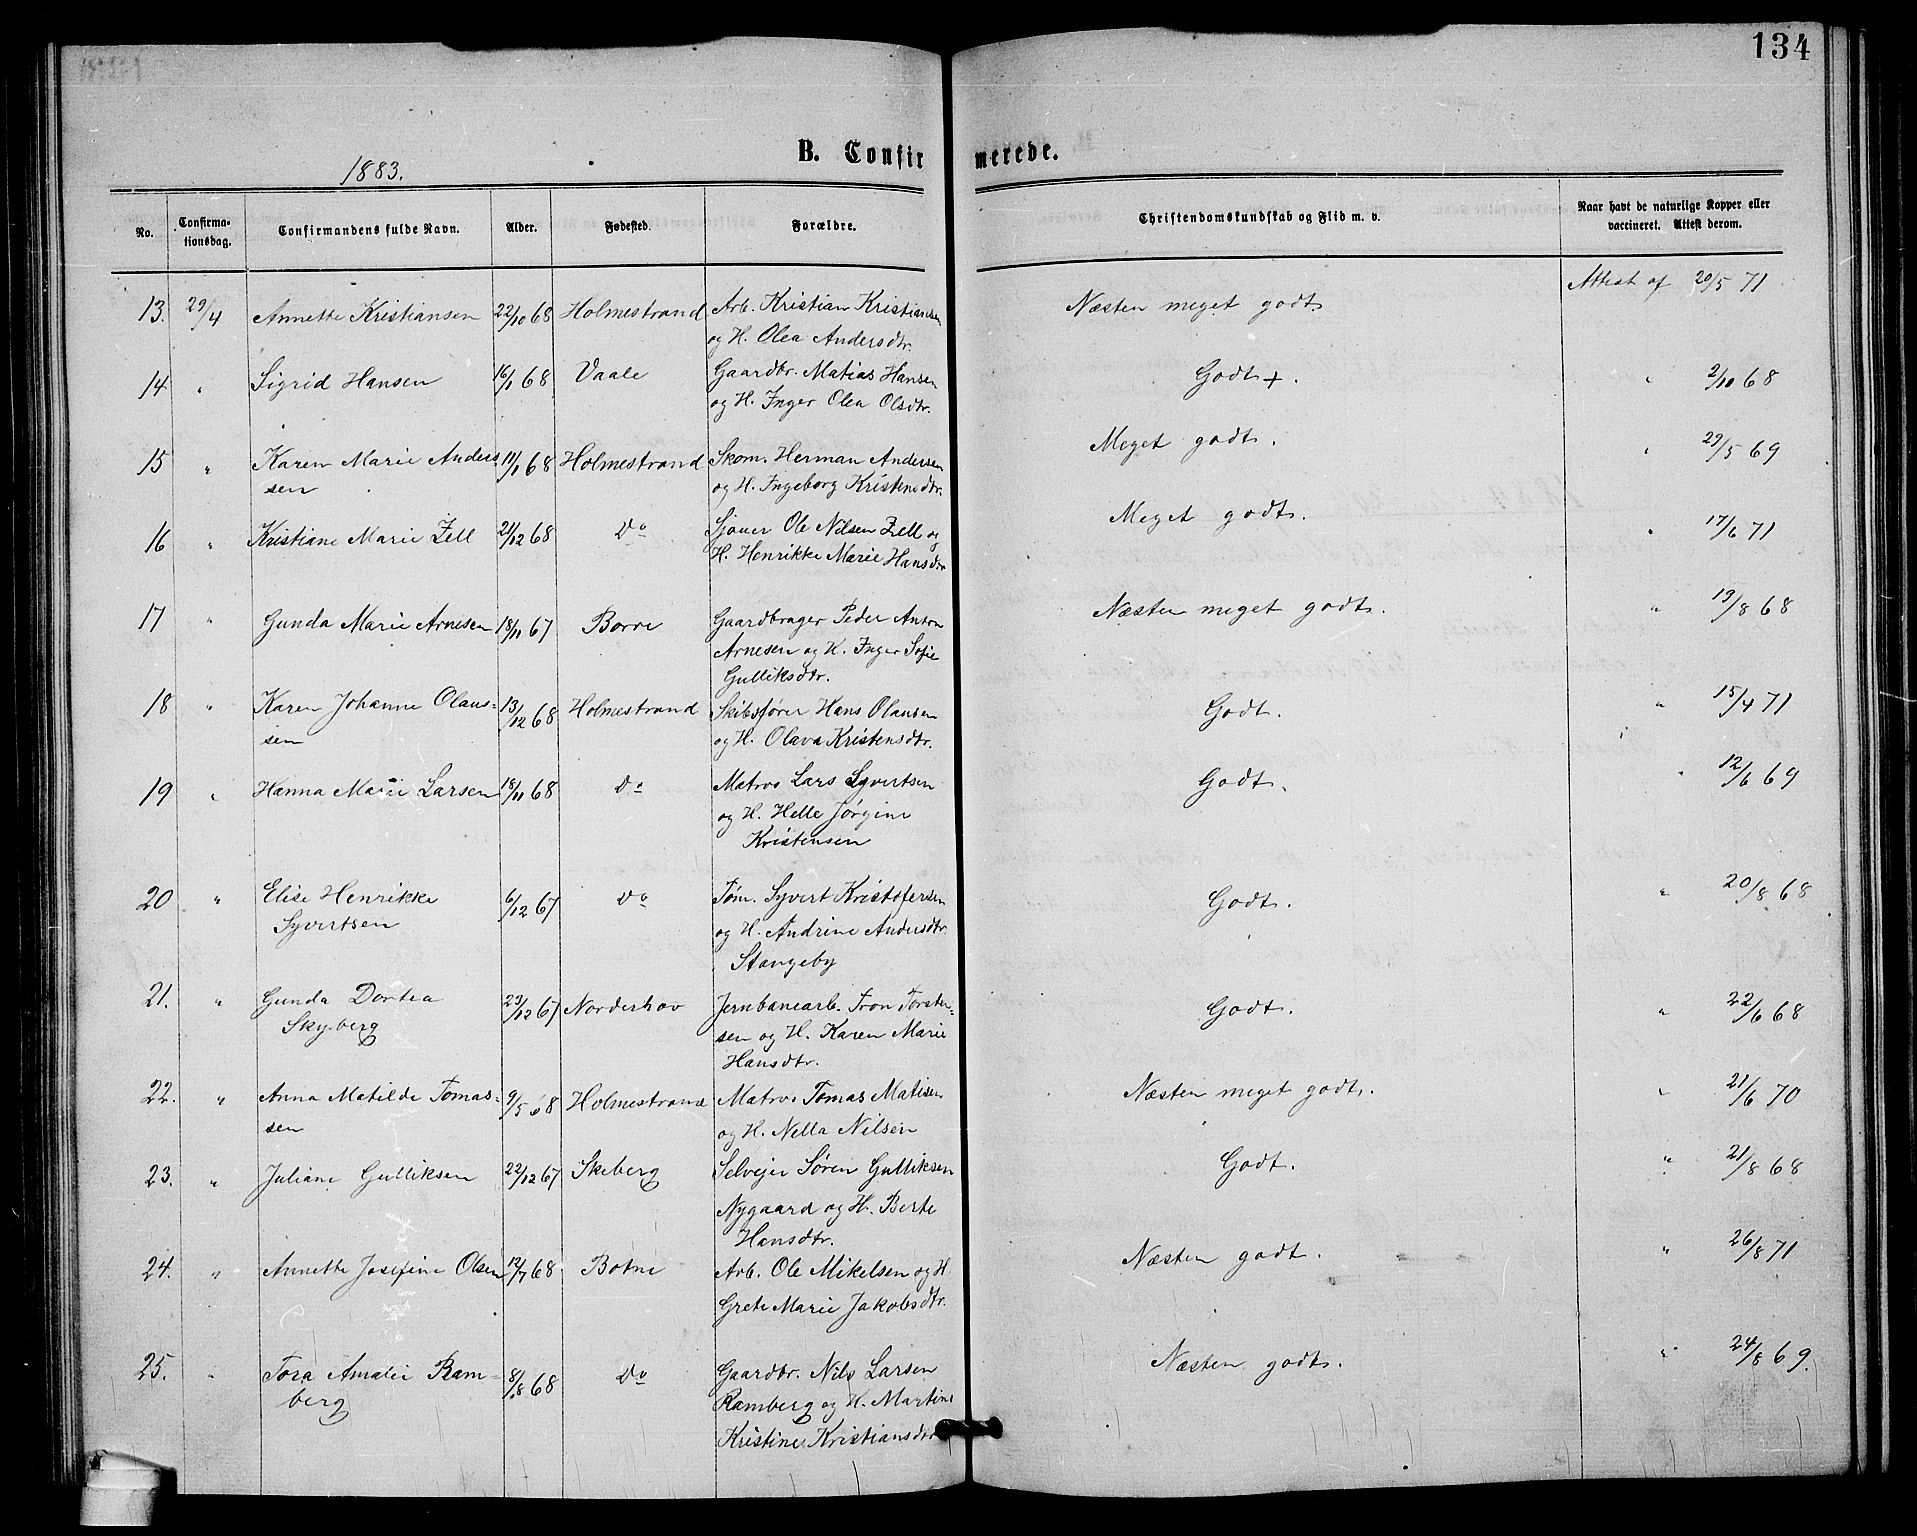 134
1883.
B. Confirmerede.
No.
Confirma-
tionsdag.
Confirmandens fulde Navn.
Alder.
Fødested.
Forældre.
Christendomskundskab og Flid m. v.
Naar havt de naturlige Kopper eller
vaccineret. Attest derom.
13. 29/4 Annette Kristiansen 22/10 68 Holmestrand Arb. Kristian Kristiansen Næsten meget godt. Attest af 20/5 71
og H. Olea Andersdtr.
14 " Sigrid Hansen 16/1 68 Vaale Gaardbr. Matias Hansen Godt +. " 2/10 68
og H. Inger Olea Olsdtr.
15 " Karen Marie Anders 11/1 68 Holmestrand Skom. Herman Andersen Meget godt. " 29/5 69
sen og H. Ingeborg Kristensdtr.
16 " Kristiane Marie Zell 21/12 68 Do Sjouer Ole Nilsen Zell og Meget godt. " 17/6 71
H. Henrikke Marie Hansdtr
17 " Gunda Marie Arnesen 18/11 67 Borre Gaardbruger Peder Anton Næsten meget godt. " 19/8 68
Arnesen og H. Inger Sofie
Gulliksdtr.
18 " Karen Johanne Olaus- 13/12 68 Holmestrand Skibsfører Hans Olausen Godt. " 15/4 71
sen og H. Olava Kristensdtr.
19 " Hanna Marie Larsen 18/11 68 Do Matros Lars Syvertsen Godt. " 12/6 69
og H. Helle Jørgine
Kristensen
20 " Elise Henrikke 6/12 67 Do Tøm. Syvert Kristofersen Godt. " 20/8 68
Syvertsen og H. Andrine Andersdtr.
Stangeby
21. " Gunda Dortea 29/12 67 Norderhov Jernbanearb. Tron Torsten- Godt. " 22/6 68
Skyberg sen og H. Karen Marie
Hansdtr.
22. " Anna Matilde Tomas- 9/5 68 Holmestrand Matros Tomas Matisen Næsten meget godt. " 21/6 70
sen og H. Nella Nilsen
23. " Juliane Gulliksen 22/12 67 Skeberg Selvejer Søren Gulliksen Godt. " 21/8 68
Nygaard og H. Berte
Hansdtr.
24. " Annette Josefine Olsen 12/7 68 Botne Arb. Ole Mikelsen og H. Næsten godt. " 26/8 71
Grete Marie Jakobsdtr.
25. " Tora Amalie Ram- 8/8 68 Do Gaardbr. Nils Larsen Næsten godt. " 24/8 69.
berg Ramberg og H. Martine
Kristine Kristiansdtr